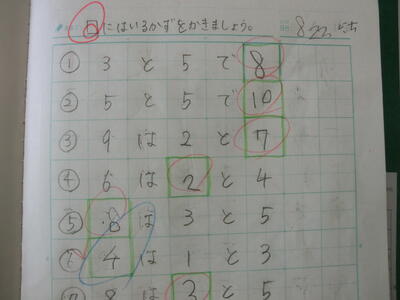 □にはいるかずをかきましょう。
① 3 と 5 で 8
② 5 と 5 で 10
③ 9 は 2 と 7
④ 6 は 2 と 4
⑤ 8 は 3 と 5
⑥ 4 は 1 と 3
⑦ 8 は 3 と 5